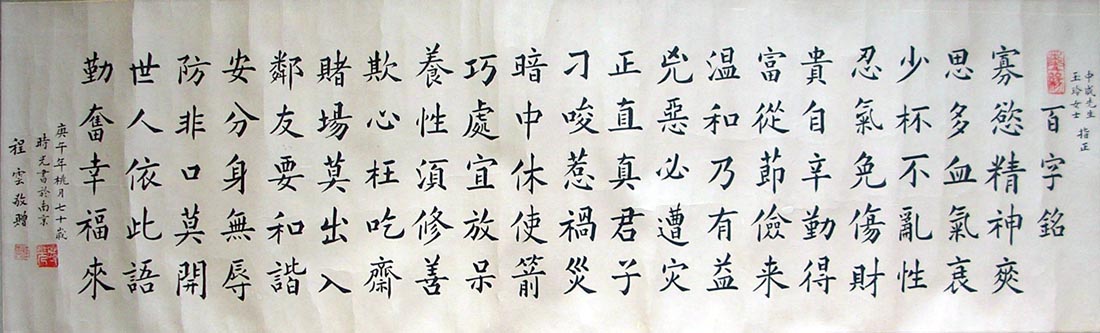 中成先生
玉玲女士 指正
百字銘
寡慾精神爽
思多血氣衰
少杯不亂性
忍氣免傷財
貴自辛勤得
富從節儉来
温和乃有益
兇惡必遭灾
正直真君子
刁唆惹禍災
暗中休使箭
巧處宜放呆
養性須修善
欺心枉吃齋
賭場莫出入
鄰友要和諧
安分身無辱
防非口莫開
世人依此語
勤奮幸福來
庚午年桃月七十歲
時元書於南京
程雲敬贈